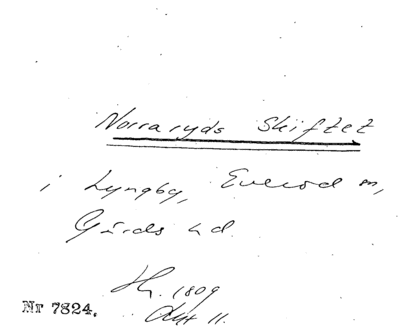 Norraryds Skiftet
i Lyngby, Everöd m,
Gärds hd.
1809
Nr 7824.